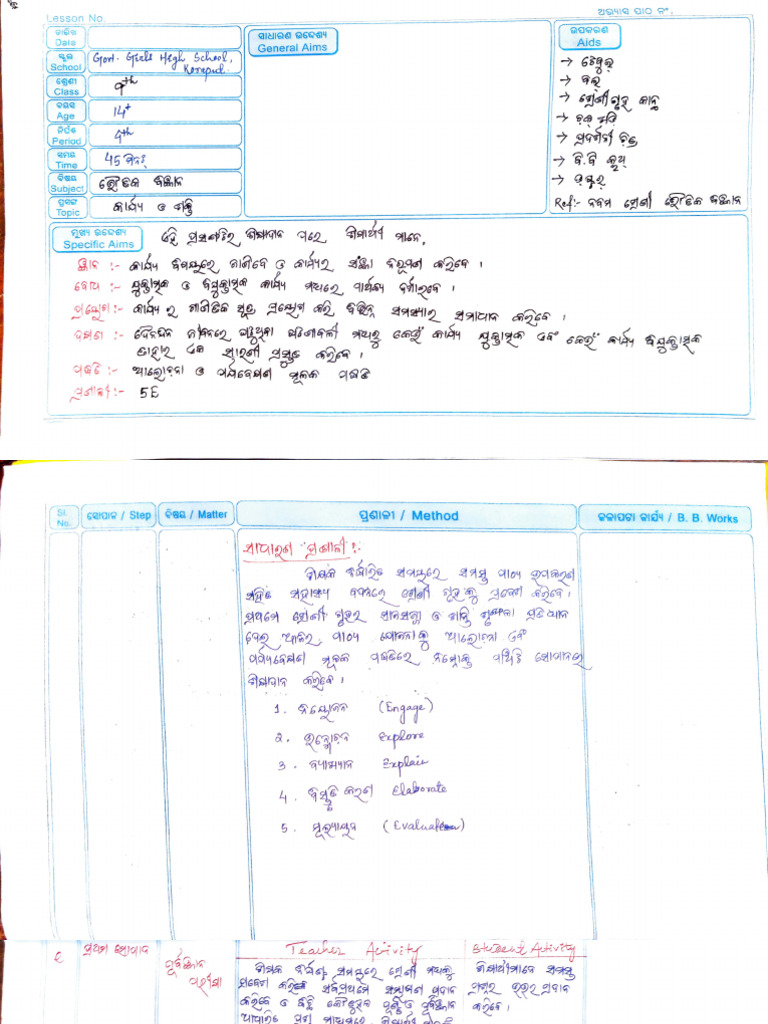 Lesson No.
ଅଭ୍ୟାସ ପାଠ ନଂ.
ତାରିଖ
Date
ସ୍କୁଲ
School
Govt. Girls High School,
Koraput
ଶ୍ରେଣୀ
Class
9th
ବୟସ
Age
14+
ନିର୍ଘଣ୍ଟ
Period
4th
ସମୟ
Time
45 ମିନିଟ୍
ବିଷୟ
Subject
ଭୌତିକ ବିଜ୍ଞାନ
ପ୍ରସଙ୍ଗ
Topic
କାର୍ଯ୍ୟ ଓ ଶକ୍ତି
ସାଧାରଣ ଉଦ୍ଦେଶ୍ୟ
General Aims
ଉପକରଣ
Aids
→ ଟେବୁଲ୍
→ ବଲ୍
→ ଶ୍ରେଣୀଗୃହ କାନ୍ଥ
→ ଚକ୍ ଖଡ଼ି
→ ପ୍ରଦର୍ଶନୀ ଚିତ୍ର
→
→ ଡଷ୍ଟର୍
Ref:- ନବମ ଶ୍ରେଣୀ ଭୌତିକ ବିଜ୍ଞାନ
ମୁଖ୍ୟ ଉଦ୍ଦେଶ୍ୟ
Specific Aims
ଏହି ପ୍ରସଙ୍ଗଟିର ଶିକ୍ଷାଦାନ ପରେ ଶିକ୍ଷାର୍ଥୀ ମାନେ,
ଜ୍ଞାନ :- କାର୍ଯ୍ୟ ବିଷୟରେ ଜାଣିବେ ଓ କାର୍ଯ୍ୟର ସଂଜ୍ଞା ନିରୂପଣ କରିବେ ।
ବୋଧ :- ଯୁକ୍ତାତ୍ମକ ଓ ବିଯୁକ୍ତାତ୍ମକ କାର୍ଯ୍ୟ ମଧ୍ୟରେ ପାର୍ଥକ୍ୟ ଦର୍ଶାଇବେ ।
ପ୍ରୟୋଗ :- କାର୍ଯ୍ୟ ର ଗାଣିତିକ ସୂତ୍ର ପ୍ରୟୋଗ କରି ବିଭିନ୍ନ ସମସ୍ୟାର ସମାଧାନ କରିବେ ।
ଦକ୍ଷତା :- ଦୈନନ୍ଦିନ ଜୀବନରେ ଘଟୁଥିବା ଘଟଣାବଳୀ ମଧ୍ୟରୁ କେଉଁ କାର୍ଯ୍ୟ ଯୁକ୍ତାତ୍ମକ ଏବଂ କେଉଁ କାର୍ଯ୍ୟ ବିଯୁକ୍ତାତ୍ମକ
ତାହାର ଏକ ସାରଣୀ ପ୍ରସ୍ତୁତ କରିବେ ।
ପଦ୍ଧତି :- ଆଲୋଚନା ଓ ପର୍ଯ୍ୟବେକ୍ଷଣ ମୂଳକ ପଦ୍ଧତି
ପ୍ରଣାଳୀ :- 5E
Sl. No.
ସୋପାନ / Step
ବିଷୟ / Matter
ପ୍ରଣାଳୀ / Method
କଳାପଟା କାର୍ଯ୍ୟ / B. B. Works
ସାଧାରଣ ପ୍ରଣାଳୀ :-
ଶିକ୍ଷକ ନିର୍ଦ୍ଧାରିତ ସମୟରେ ସମସ୍ତ ପାଠ୍ୟ ଉପକରଣ
ସହିତ ସହାସ୍ୟ ବଦନରେ ଶ୍ରେଣୀ ଗୃହକୁ ପ୍ରବେଶ କରିବେ ।
ପ୍ରଥମେ ଶ୍ରେଣୀ ଗୃହର ସାଜସଜ୍ଜା ଓ ଶୃଙ୍ଖଳା ପ୍ରତି ଧ୍ୟାନ
ଦେଇ ପାଠ୍ୟ ଯୋଜନାକୁ ଆଲୋଚନା ଏବଂ
ପର୍ଯ୍ୟବେକ୍ଷଣ ମୂଳକ ପଦ୍ଧତିରେ ନିମ୍ନୋକ୍ତ ପାଞ୍ଚଟି ସୋପାନରେ
ଶିକ୍ଷାଦାନ କରିବେ ।
1. ନିୟୋଜନ (Engage)
2. ଉନ୍ମୋଚନ Explore
3. ବ୍ୟାଖ୍ୟାନ Explain
4. ବିସ୍ତୃତି କରଣ Elaborate
5. ମୂଲ୍ୟାୟନ (Evaluation)
Teacher Activity
Student Activity
୧
ପ୍ରଥମ ସୋପାନ
ପୂର୍ବଜ୍ଞାନ
ପରୀକ୍ଷା
ଶିକ୍ଷକ ନିର୍ଦ୍ଧିଷ୍ଟ ସମୟରେ ଶ୍ରେଣୀ ମଧ୍ୟକୁ
ପ୍ରବେଶ କରି ସର୍ବପ୍ରଥମେ ସମ୍ଭାଷଣ ପ୍ରଦାନ
କରିବେ ଓ କିଛି ପୂର୍ବଜ୍ଞାନ
ଆଧାରିତ ପ୍ରଶ୍ନ ମାଧ୍ୟମରେ
ଶିକ୍ଷାର୍ଥୀମାନେ ସମସ୍ତ
ପ୍ରଶ୍ନର ଉତ୍ତର ପ୍ରଦାନ
କରିବେ ।